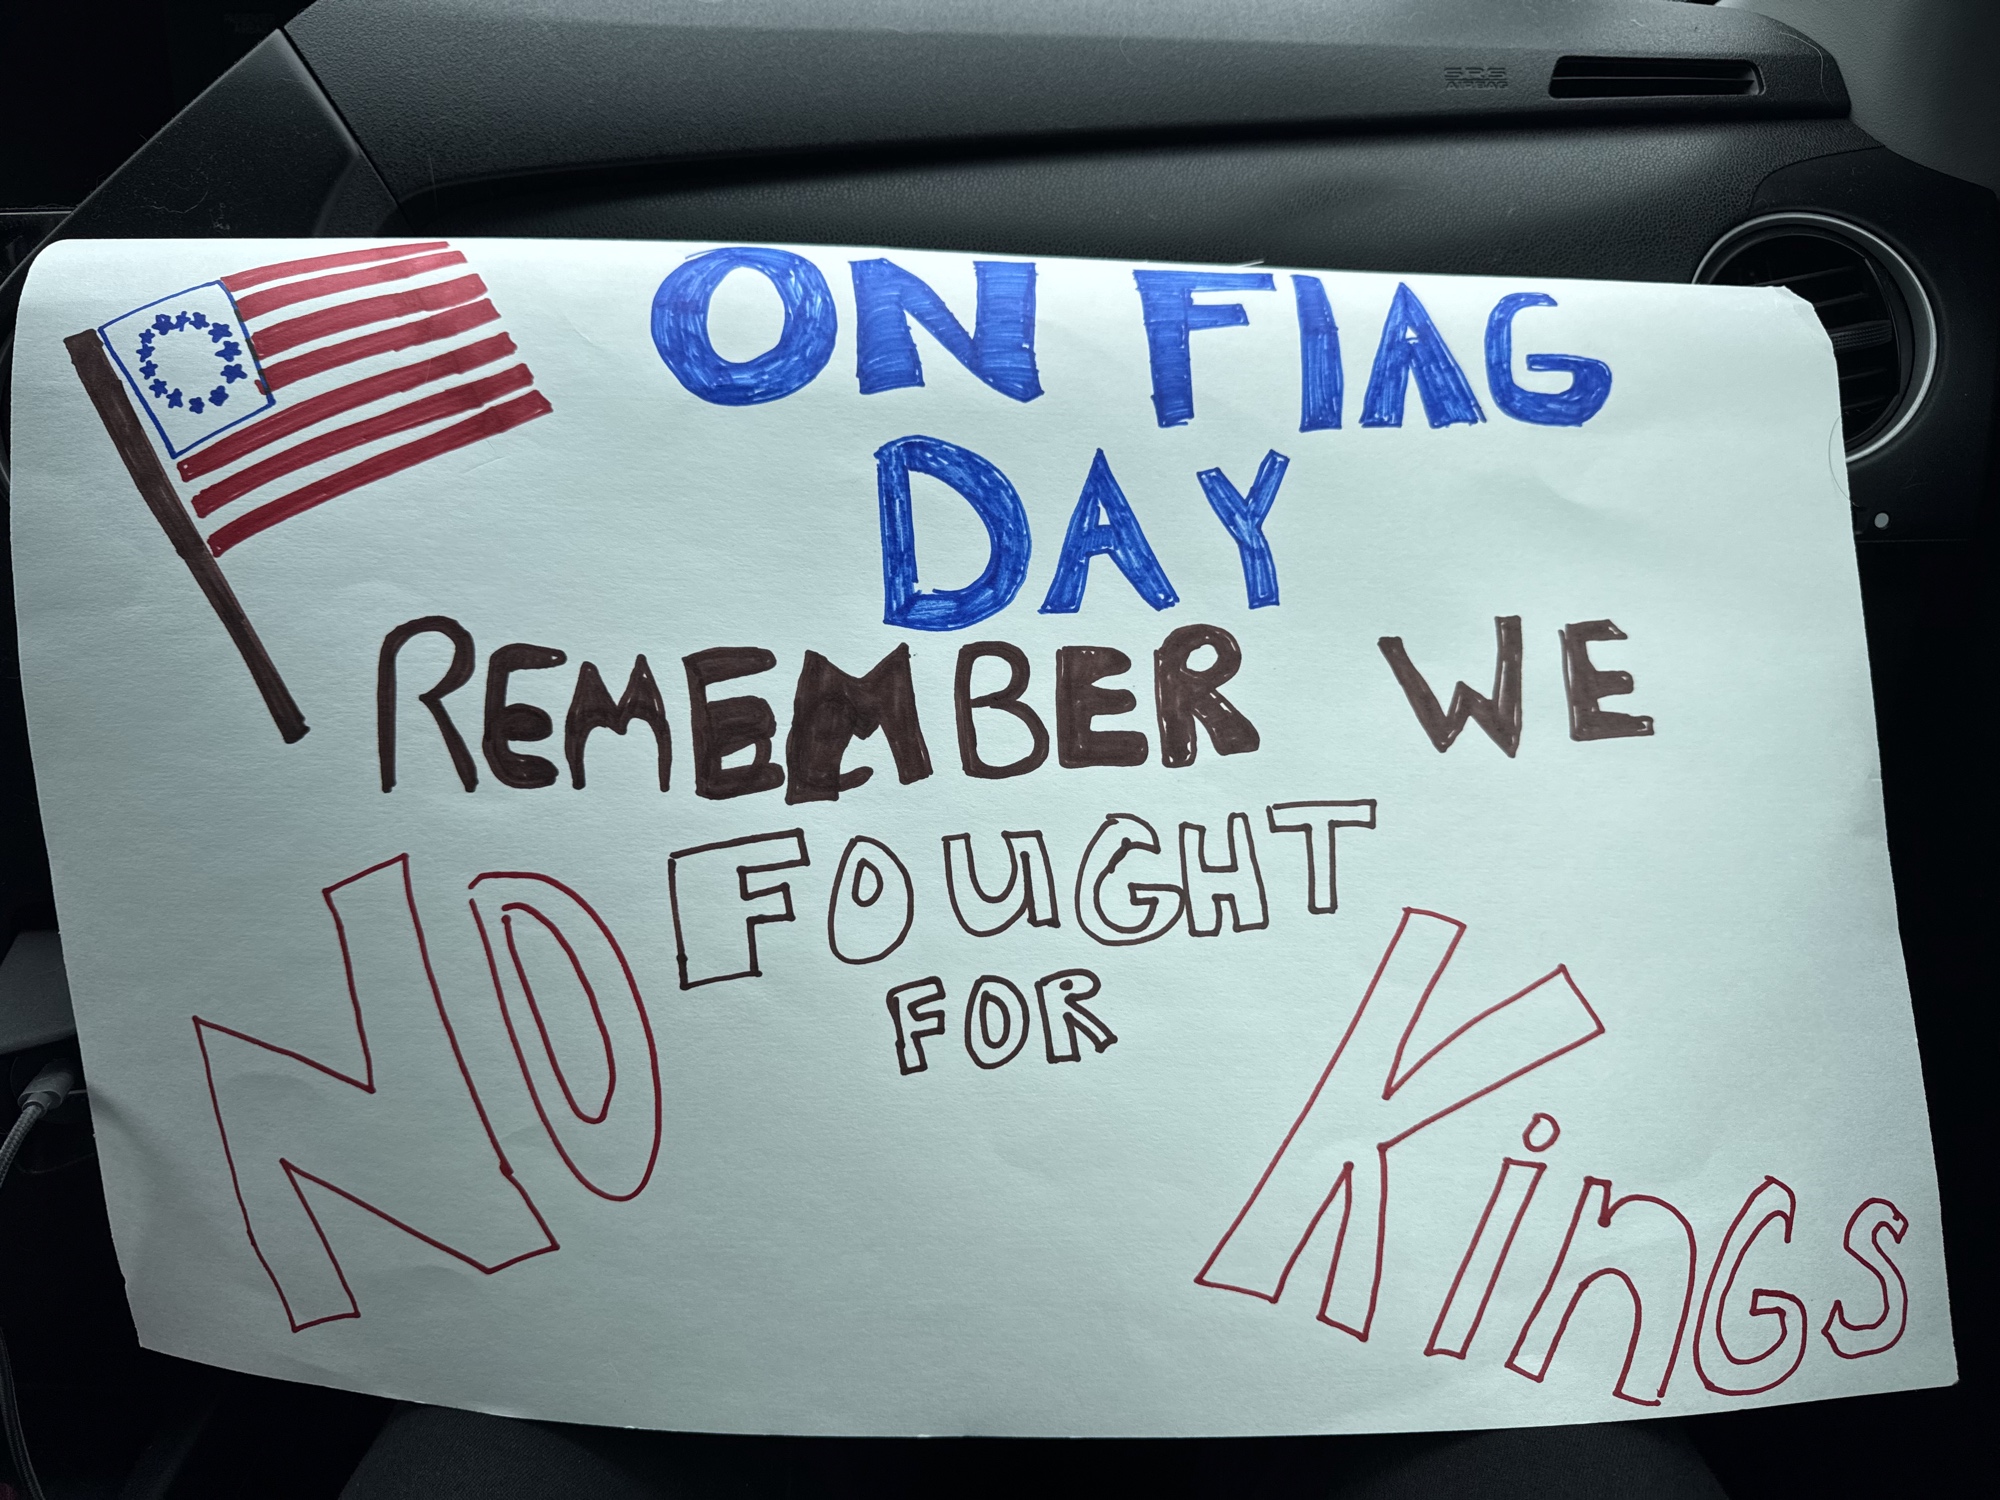 SRS
AIRBAG
ON FlAG
DAY
REMEMBER WE
FOUGHT
FOR
NO KinGS